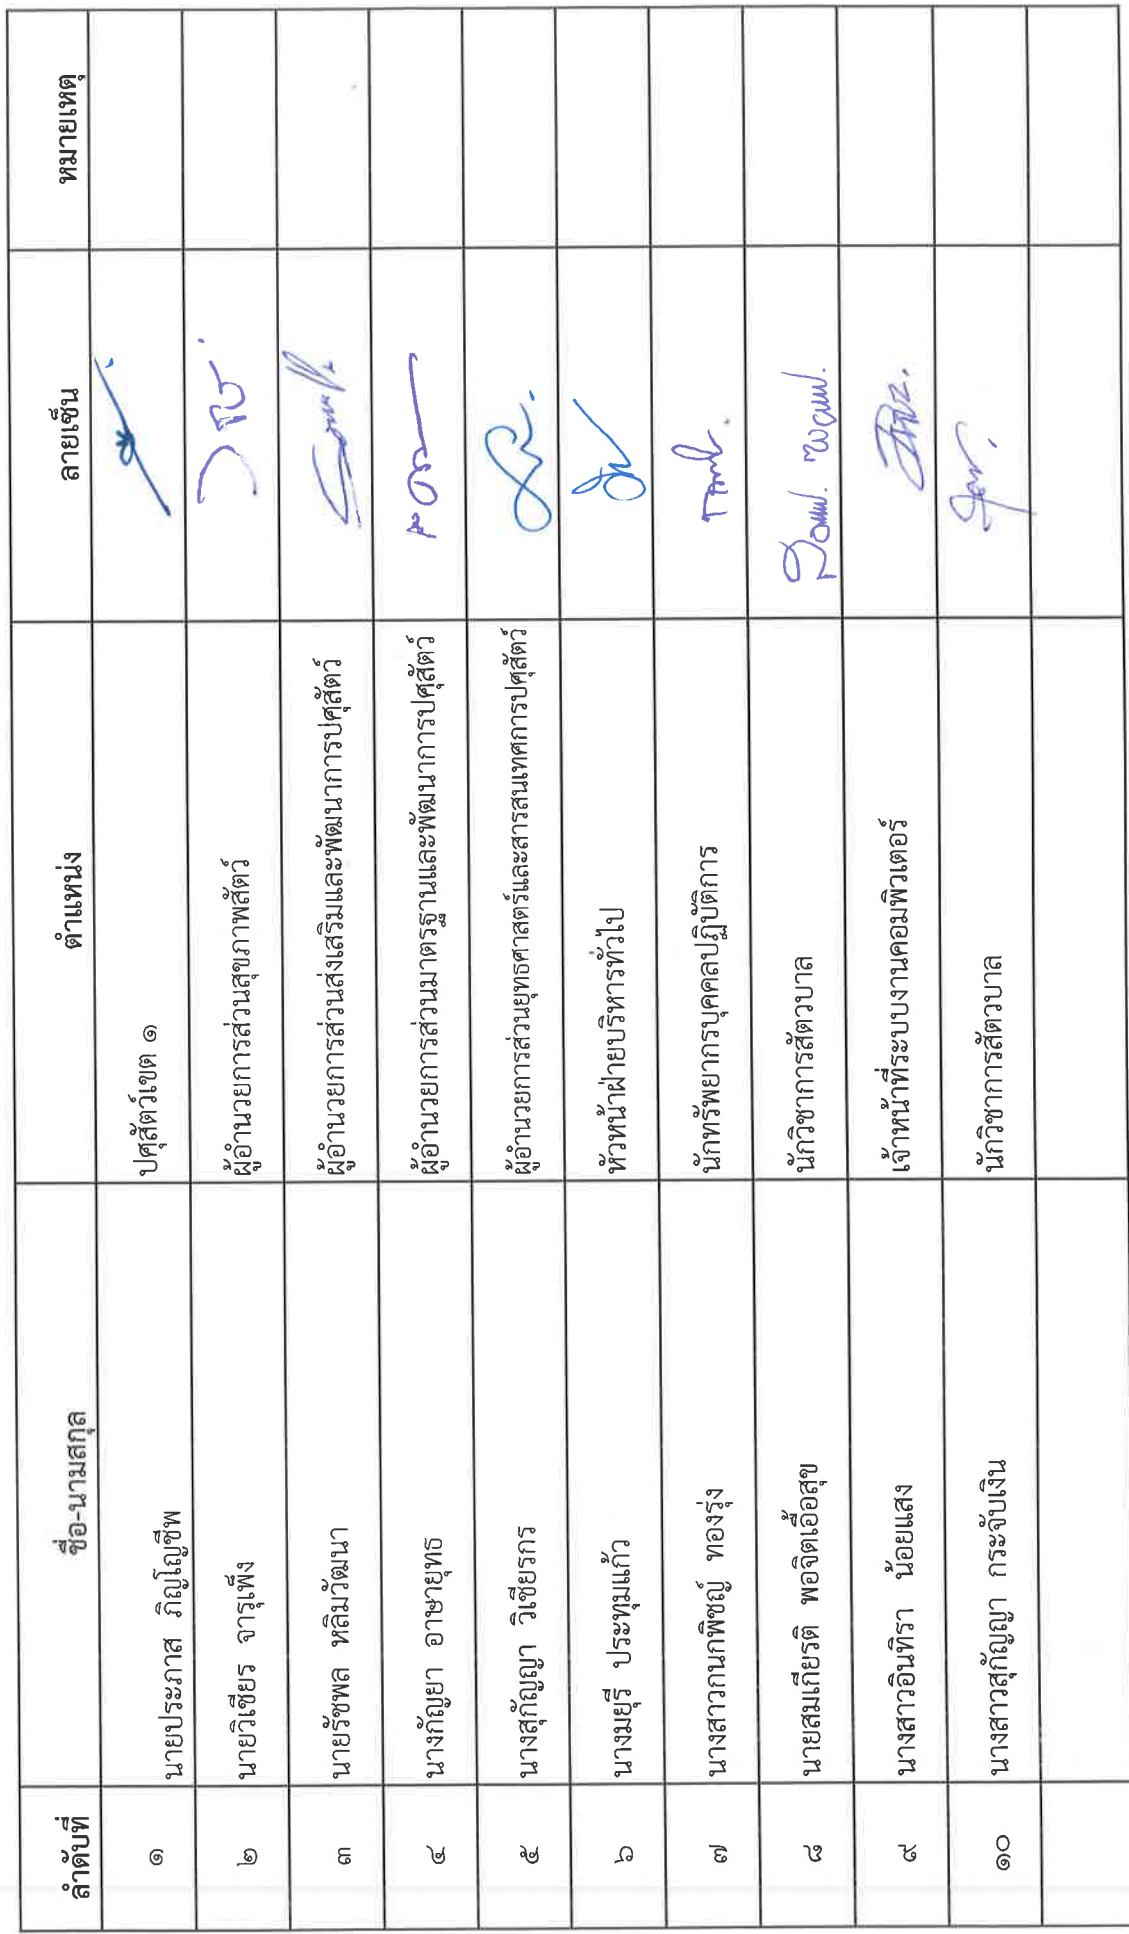 ลำดับที่ ชื่อ-นามสกุล ตำแหน่ง ลายเซ็น หมายเหตุ
๑ นายประภาส ภิญโญชีพ ปศุสัตว์เขต ๑
๒ นายวิเชียร จารุเพ็ง ผู้อำนวยการส่วนสุขภาพสัตว์
๓ นายรัชพล หลิมวัฒนา ผู้อำนวยการส่วนส่งเสริมและพัฒนาการปศุสัตว์
๔ นางกัญยา อาษายุทธ ผู้อำนวยการส่วนมาตรฐานและพัฒนาการปศุสัตว์
๕ นางสุกัญญา วิเชียรกร ผู้อำนวยการส่วนยุทธศาสตร์และสารสนเทศการปศุสัตว์
๖ นางมยุรี ประทุมแก้ว หัวหน้าฝ่ายบริหารทั่วไป
๗ นางสาวกนกพิชญ์ ทองรุ่ง นักทรัพยากรบุคคลปฏิบัติการ
๘ นายสมเกียรติ พอจิตเอื้อสุข นักวิชาการสัตวบาล
๙ นางสาวอินทิรา น้อยแสง เจ้าหน้าที่ระบบงานคอมพิวเตอร์
๑๐ นางสาวสุกัญญา กระจับเงิน นักวิชาการสัตวบาล